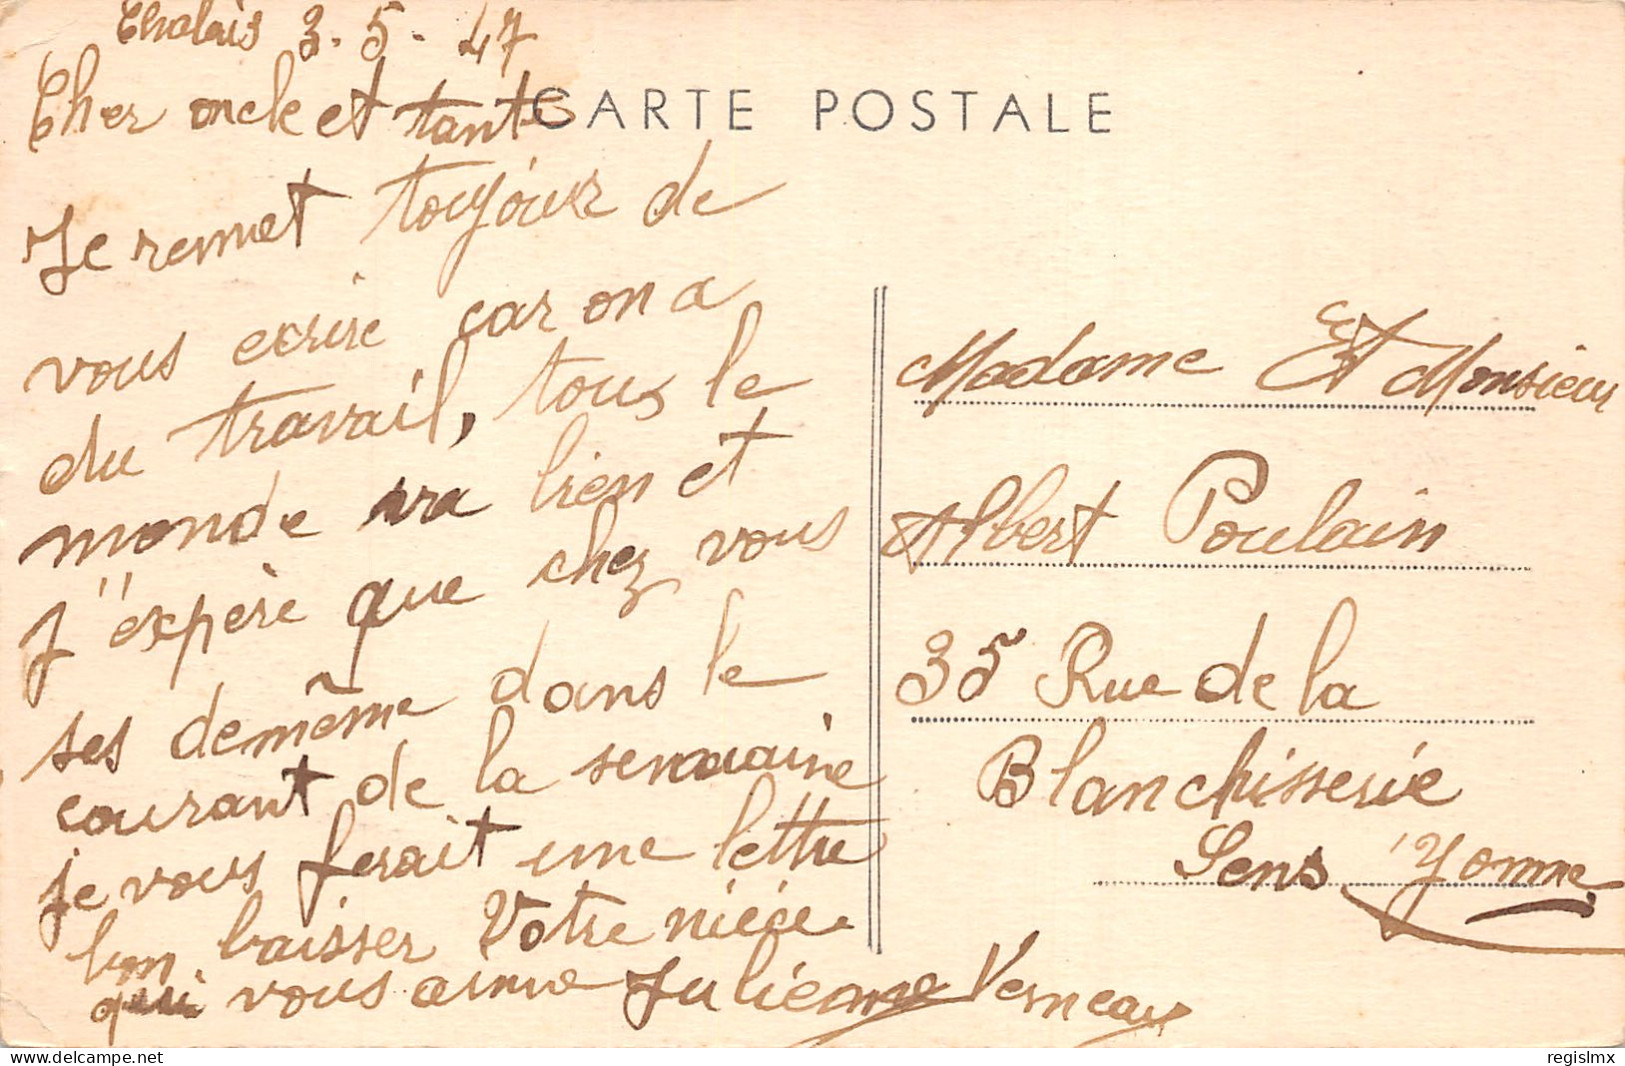 Chalais 3.5.47
Cher oncle et tante
CARTE POSTALE
Je remet toujour de
vous ecrire car on a
du travail, tous le
monde va bien et
J'expère que chez vous
ses de même dans le
courant de la semaine
je vous ferait une lettre
bon baisser Votre nièce
qui vous aime Julienne Verneau
Madame Et Monsieur
Albert Poulain
35 Rue de la
Blanchisserie
Sens Yonne
regislmx